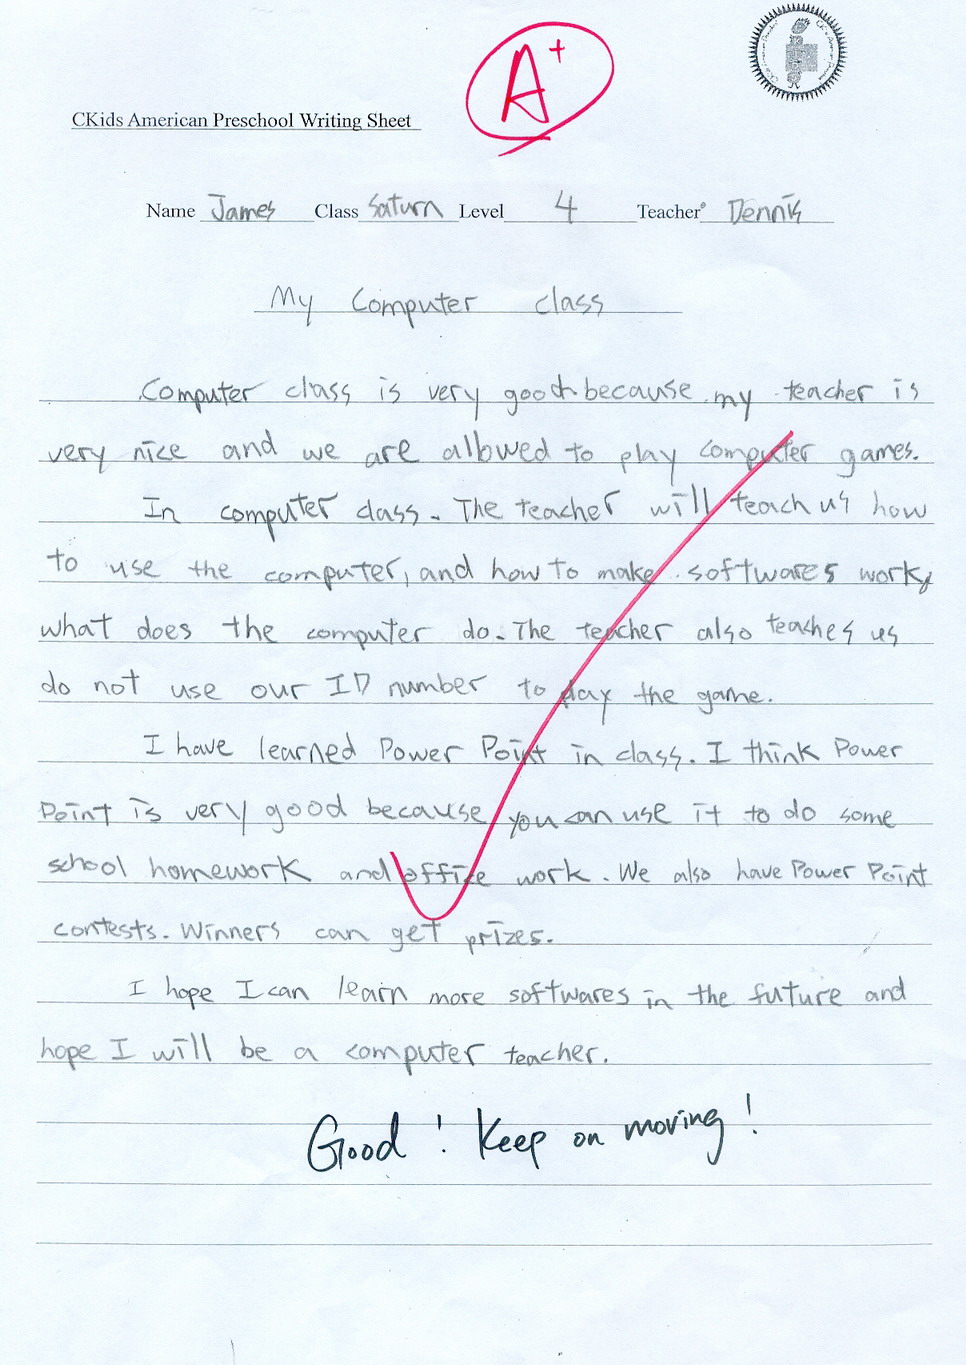 A+
CKids American Preschool Writing Sheet
Name James Class Saturn Level 4 Teacher Dennis
My Computer class
Computer class is very good because my teacher is
very nice and we are allowed to play computer games.
In computer class. The teacher will teach us how
to use the computer, and how to make softwares work,
what does the computer do. The teacher also teaches us
do not use our ID number to play the game.
I have learned Power Point in class. I think Power
Point is very good because you can use it to do some
school homework and office work. We also have Power Point
contests. Winners can get prizes.
I hope I can learn more softwares in the future and
hope I will be a computer teacher.
Good! Keep on moving!